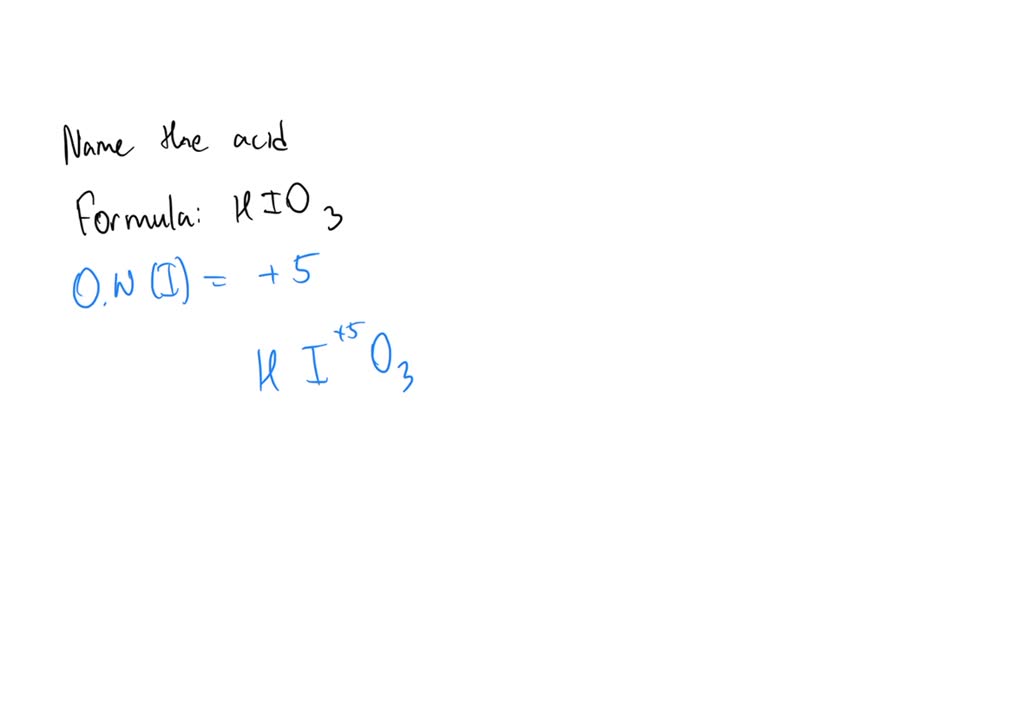 Name the acid
Formula: HIO₃
O.N (I) = +5
H I⁺⁵ O₃